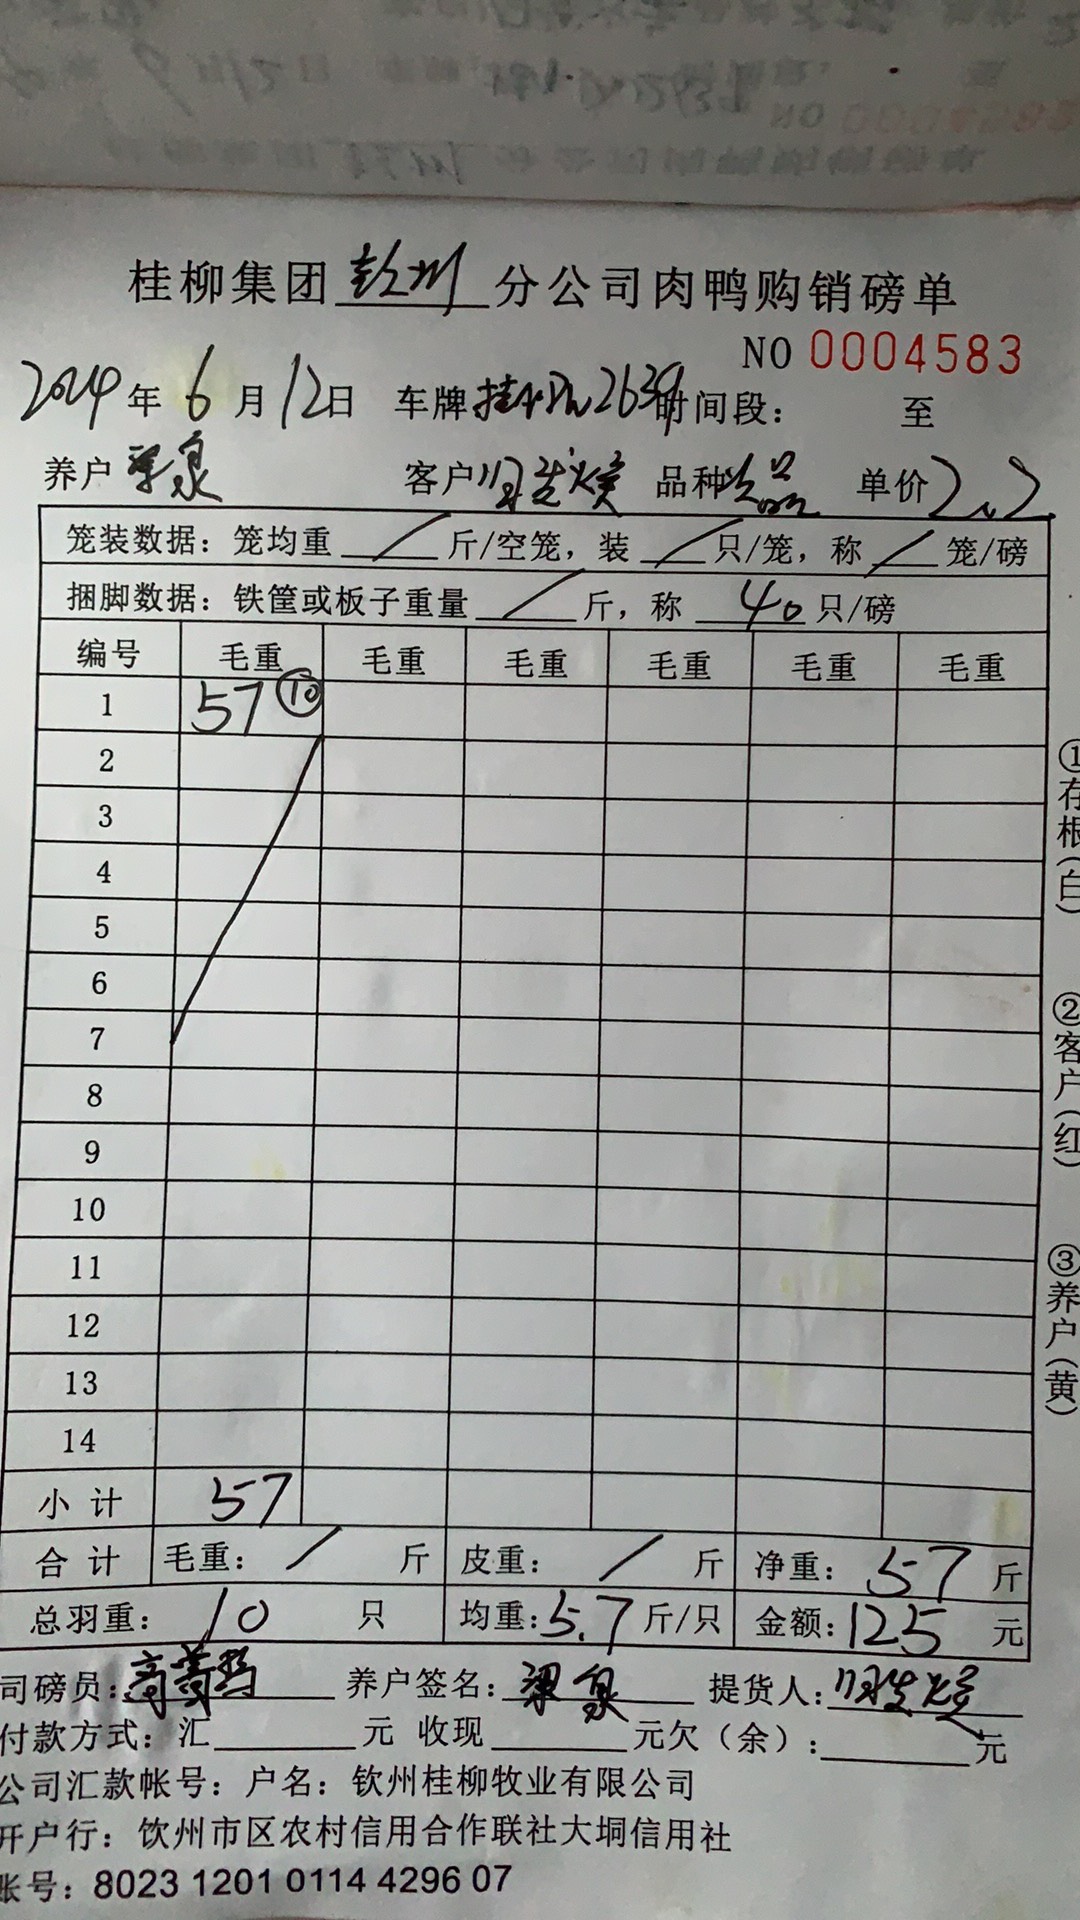 桂柳集团 钦州 分公司肉鸭购销磅单
NO 0004583
2024 年 6 月 12 日 车牌 2639 时间段： 至
养户 梁泉 客户 品种 次品 单价 2.2
笼装数据：笼均重 / 斤/空笼，装 / 只/笼，称 / 笼/磅
捆脚数据：铁筐或板子重量 / 斤，称 40 只/磅
编号 毛重 毛重 毛重 毛重 毛重 毛重
1 57 ⑩
2
3
4
5
6
7
8
9
10
11
12
13
14
小计 57
合计 毛重： / 斤 皮重： / 斤 净重： 57 斤
总羽重： 10 只 均重：5.7 斤/只 金额：125 元
司磅员： 养户签名：梁泉 提货人：
付款方式：汇 元 收现 元欠（余）： 元
公司汇款帐号：户名：钦州桂柳牧业有限公司
开户行：钦州市区农村信用合作联社大垌信用社
账号：8023 1201 0114 4296 07
①存根（白）
②客户（红）
③养户（黄）